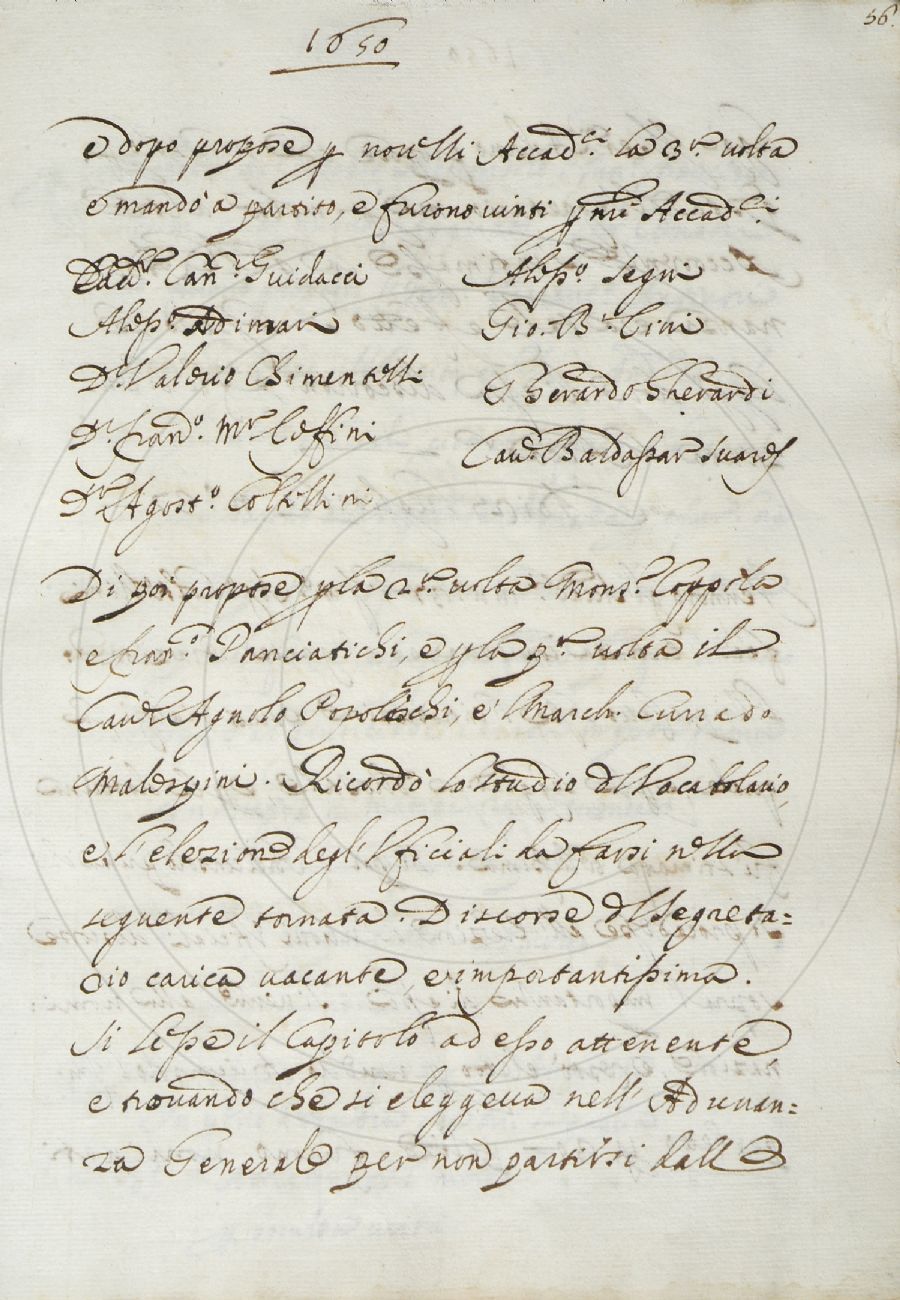 56.
1650
e dopo propose p novelli Accad.ci la 3.a volta
e mandò a partito, e furono vinti p nri Accad.ci
Can.co Guidacci
Aless.o Adimari
D.r Valerio Chimentelli
D.r Fran.co M.a Ceffini
D.r Agost.o Coltellini
Aless.o Segni
Gio. B.a Cini
Gherardo Gherardi
Cav.e Baldassar Suares
Di poi propose p la 2.a volta Mons.r Coppola
e Fran.co Panciatichi, e p la p.a volta il
Cav.e Agnolo Popoleschi, e 'l March. Currado
Malespini. Ricordò lo studio del Vocabolario,
e l'elezione degl'Ufficiali da farsi nella
seguente tornata. Discorse del Segreta=
rio carica vacante, e importantissima.
Si lesse il Capitolo ad esso attenente,
e trovando che si eleggeva nell'Adunan=
za Generale per non partirsi dalle